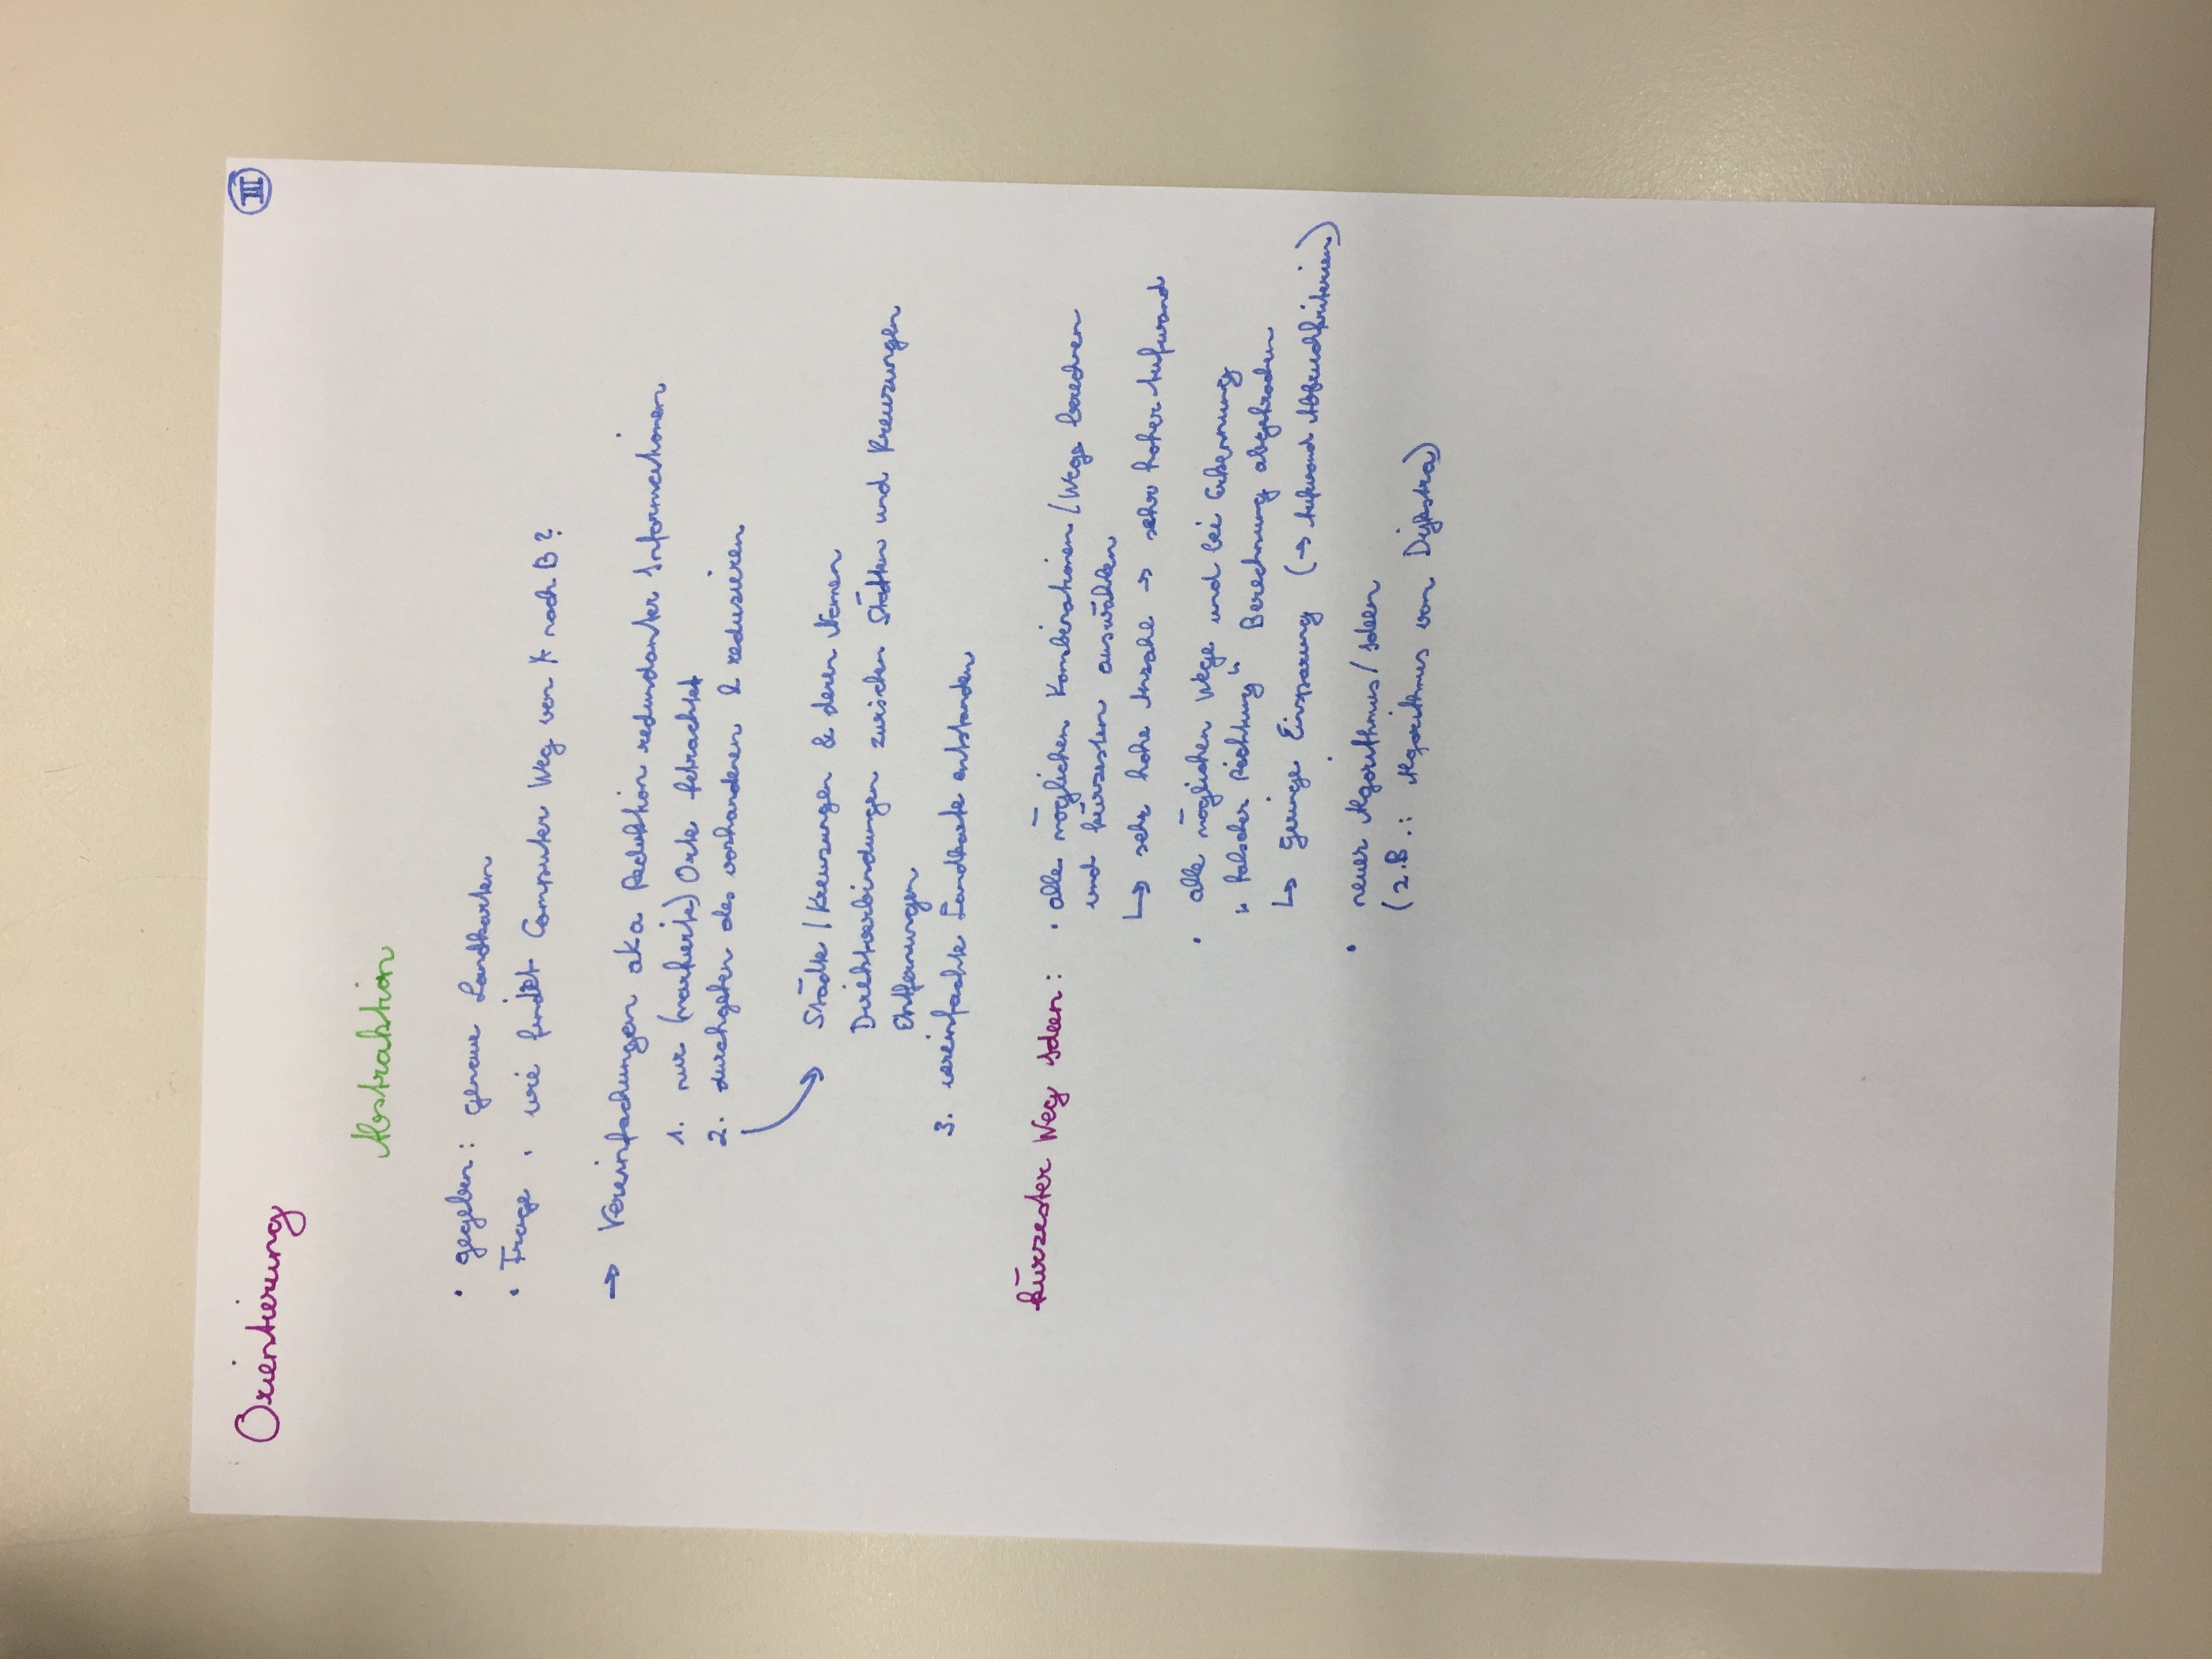 Orientierung
III
Abstraktion
• gegeben: genaue Landkarten
• Frage: wie findet Computer Weg von A nach B?
→ Vereinfachungen aka Reduktion redundanter Informationen
1. nur (markierte) Orte betrachtet
2. durchgehen des vorhandenen & reduzieren
Städte / Kreuzungen & deren Namen
Direktverbindungen zwischen Städten und Kreuzungen
Entfernungen
3. vereinfachte Landkarte entstanden
kürzester Weg Ideen: • alle möglichen Kombinationen / Wege berechnen
und kürzesten auswählen
↳ sehr hohe Anzahl → sehr hoher Aufwand
• alle möglichen Wege und bei Erkennung
"falscher Richtung" Berechnung abgebrochen
↳ geringe Einsparung (→ Aufwand Abbruchkriterien)
• neuer Algorithmus / Ideen
(z.B.: Algorithmus von Dijkstra)